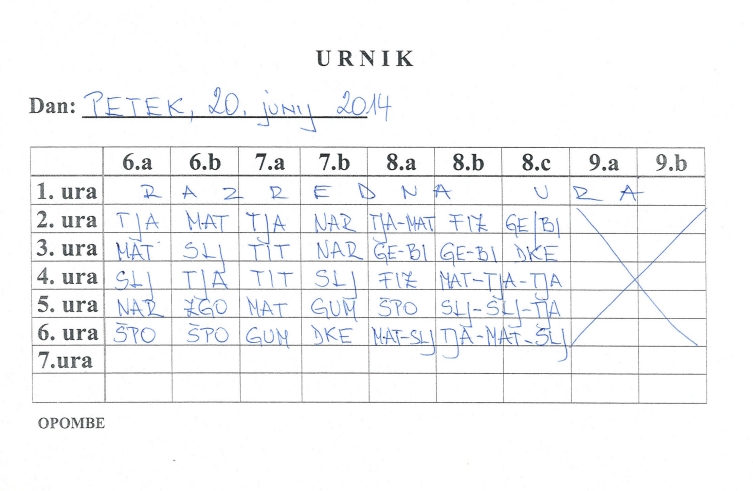 URNIK
Dan: PETEK, 20. junij 2014
6.a 6.b 7.a 7.b 8.a 8.b 8.c 9.a 9.b
1. ura RAZREDNA URA
2. ura TJA MAT TJA NAR TJA-MAT FIZ GE/BI
3. ura MAT SLJ TIT NAR GE-BI GE-BI DKE
4. ura SLJ TJA TIT SLJ FIZ MAT-TJA-TJA
5. ura NAR ZGO MAT GUM ŠPO SLJ-SLJ-TJA
6. ura ŠPO ŠPO GUM DKE MAT-SLJ TJA-MAT-SLJ
7.ura
OPOMBE